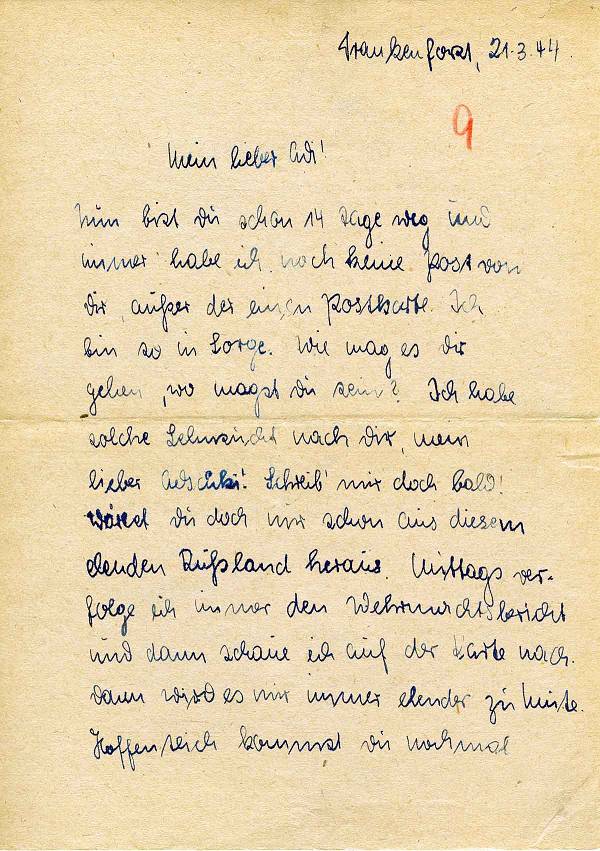 Frankenforst, 21.3.44.
9
Mein lieber Adi!
Nun bist du schon 14 Tage weg und
immer habe ich noch keine Post von
dir, außer der einen Postkarte. Ich
bin so in Sorge. Wie mag es dir
gehen, wo magst du sein? Ich habe
solche Sehnsucht nach dir, mein
lieber Adschki! Schreib' mir doch bald!
Wärest du doch nur schon aus diesem
elenden Rußland heraus. Mittags ver-
folge ich immer den Wehrmachtsbericht
und dann schaue ich auf der Karte nach.
Dann wird es mir immer elender zu Mute.
Hoffentlich kommst du nochmal